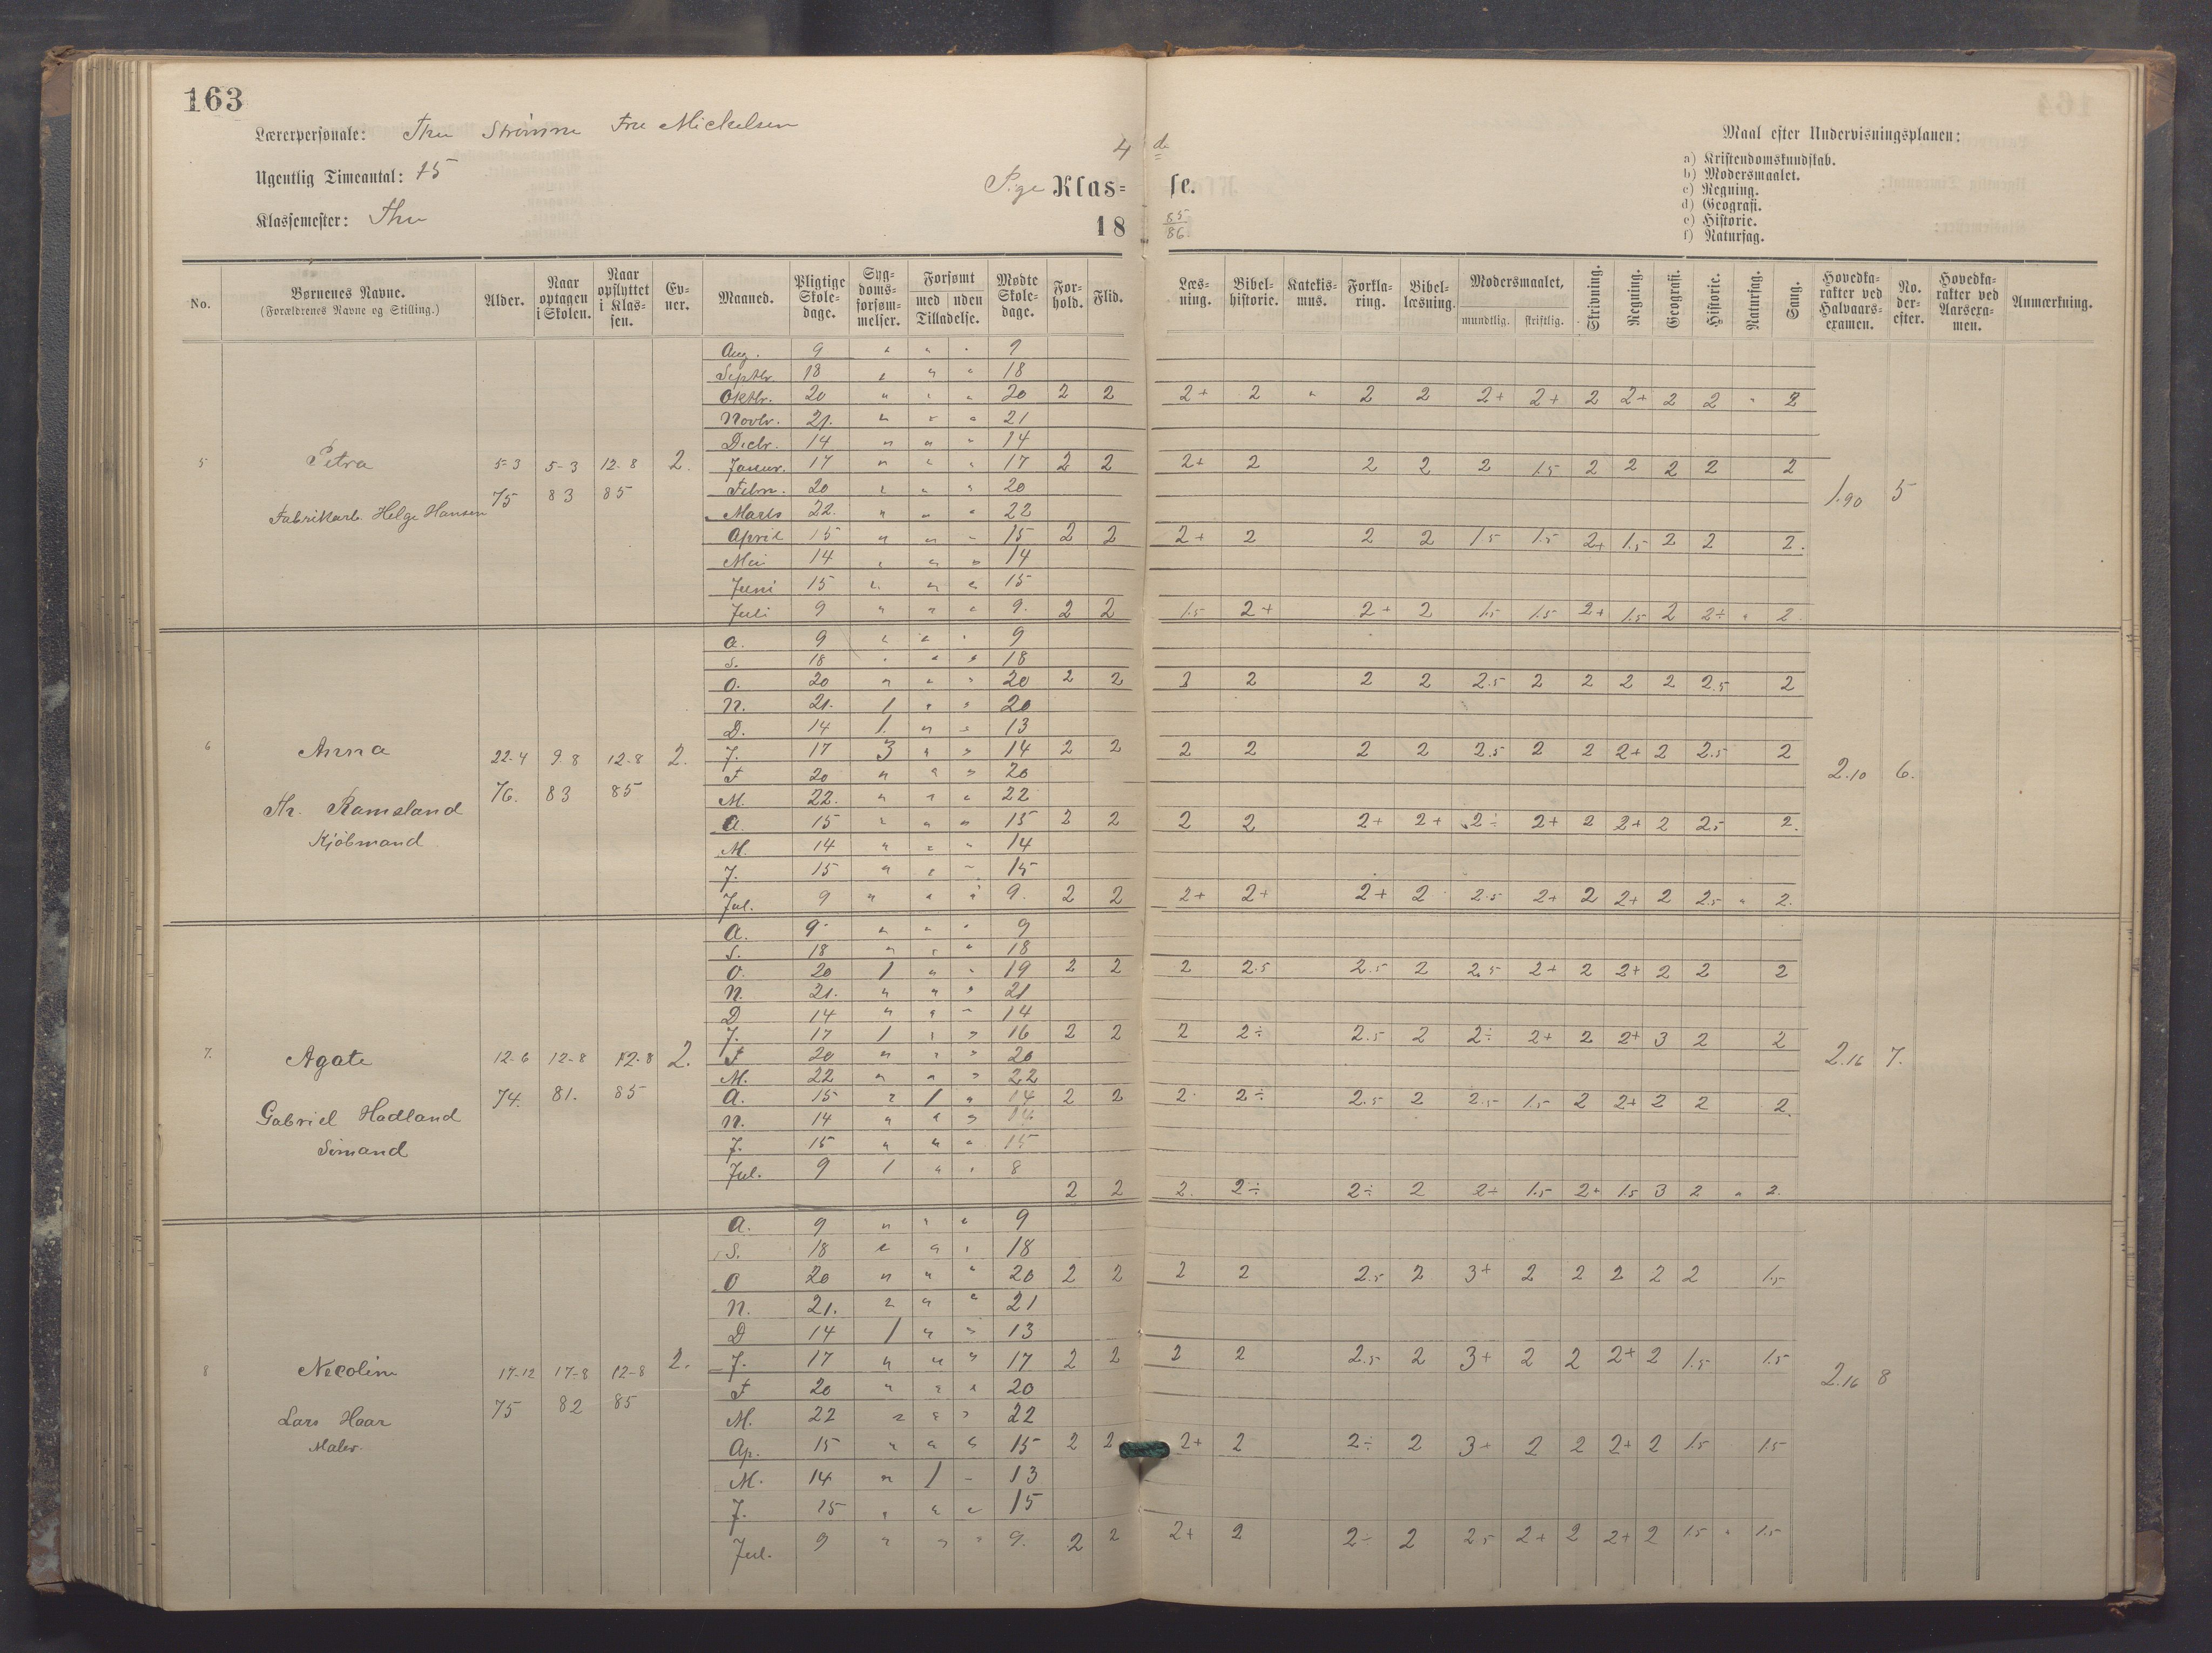 163
Lærerpersonale: Thu Strømme Frk Mickelsen
Ugentlig Timeantal: 15
Klassemester: Thu
4 de
Pige Klas= se.
18 85/86
Maal efter Undervisningsplanen:
a) Kristendomskundskab.
b) Modersmaalet.
c) Regning.
d) Geografi.
e) Historie.
f) Naturfag.
No. Børnenes Navne. (Forældrenes Navne og Stilling.) Alder. Naar optagen i Skolen. Naar opflyttet i Klassen. Evner. Maaned. Pligtige Skoledage. Sygdomsforsømmelser. Forsømt med uden Tilladelse. Mødte Skoledage. Forhold. Flid. Læsning. Bibelhistorie. Katekismus. Forklaring. Bibellæsning. Modersmaalet, mundtlig. skriftlig. Skrivning. Regning. Geografi. Historie. Naturfag. Sang. Hovedkarakter ved Halvaarsexamen. No. derefter. Hovedkarakter ved Aarsexamen. Anmærkning.
Aug. 9 " " " 9
Septbr. 18 " " " 18
Oktbr. 20 " " " 20 2 2 2+ 2 " 2 2 2+ 2+ 2 2+ 2 2 " 2
Novbr. 21. " " " 21
Decbr. 14 " " " 14
5 Petra 5-3 5-3 12-8 2. Januar. 17 " " " 17 2 2 2+ 2 2 2 2 1.5 2 2 2 2 2
75 83 85 Febru. 20 " " " 20 1.90 5
Fabrikarb. Helge Hansen Marts 22. " " " 22
April 15 " " " 15 2 2 2+ 2 2 2 1.5 1.5 2+ 1.5 2 2 2.
Mai 14 " " " 14
Juni 15 " " " 15
Juli 9 " " " 9. 2 2 1.5 2+ 2+ 2 1.5 1.5 2+ 1.5 2 2÷ " 2.
A. 9 " " " 9
S. 18 " " " 18
O. 20 " " " 20 2 2 2 2 2 2.5 2 2 2 2 2.5 2
N. 21. 1 " " 20
D. 14 1. " " 13
6 Anna 22-4 9-8 12-8 2. J. 17 3 " " 14 2 2 2 2 2 2 2.5 2 2 2+ 2 2.5 2
F 20 " " " 20 2.10 6.
76. 83 85 M. 22. " " " 22
Th. Ramsland A. 15 " " " 15 2 2 2 2 2+ 2+ 2÷ 2+ 2 2+ 2 2.5 2.
Kjøbmand M. 14 " " " 14
J. 15 " " " 15
Jul. 9 " " " 9. 2 2 2+ 2+ 2+ 2 2.5 2+ 2 2+ 2 2.5 " 2.
A. 9 " " " 9
S. 18 " " " 18
O. 20 1 " " 19 2 2 2 2.5 2.5 2 2.5 2+ 2 2+ 2 2 2
N. 21. " " " 21
D 14 " " " 14
J. 17 1 " " 16 2 2 2 2÷ 2.5 2 2÷ 2+ 2 2+ 3 2 2
7. Agate 12-6 12-8 12-8 2. F 20 " " " 20 2.16 7.
M. 22 " " " 22
74. 81. 85 A. 15 " 1 " 14 2 2 2. 2÷ 2.5 2 2.5 1.5 2 2+ 2 2 2.
Gabriel Hadland M. 14 " " " 14
Sømand J. 15 " " " 15
Jul. 9 1 " " 8
2 2 2. 2÷ 2÷ 2 2÷ 1.5 2+ 1.5 3 2 " 2.
A. 9 " " " 9
S. 18 " " " 18
O 20 " " " 20 2 2 2 2 2.5 2 3+ 2 2 2 2 2 1.5
N. 21. " " " 21
D 14 1 " " 13
8 Necoline 17-12 17-8 12-8 2. J. 17 " " " 17 2 2 2 2 2.5 2 3+ 2 2 2+ 2 1.5 1.5
F 20 " " " 20 2.16 8
75 82 85 M. 22 " " " 22
Lars Haar
Maler. Ap. 15 " " " 15 2 2 2+ 2 2÷ 2 3+ 2 2 2+ 2 1.5 1.5
M. 14 " 1 " 13
J. 15 " " " 15
Jul. 9 " " " 9. 2 2 2+ 2 2÷ 2 2.5 2+ 2 2+ 2 1.5 " 1.5